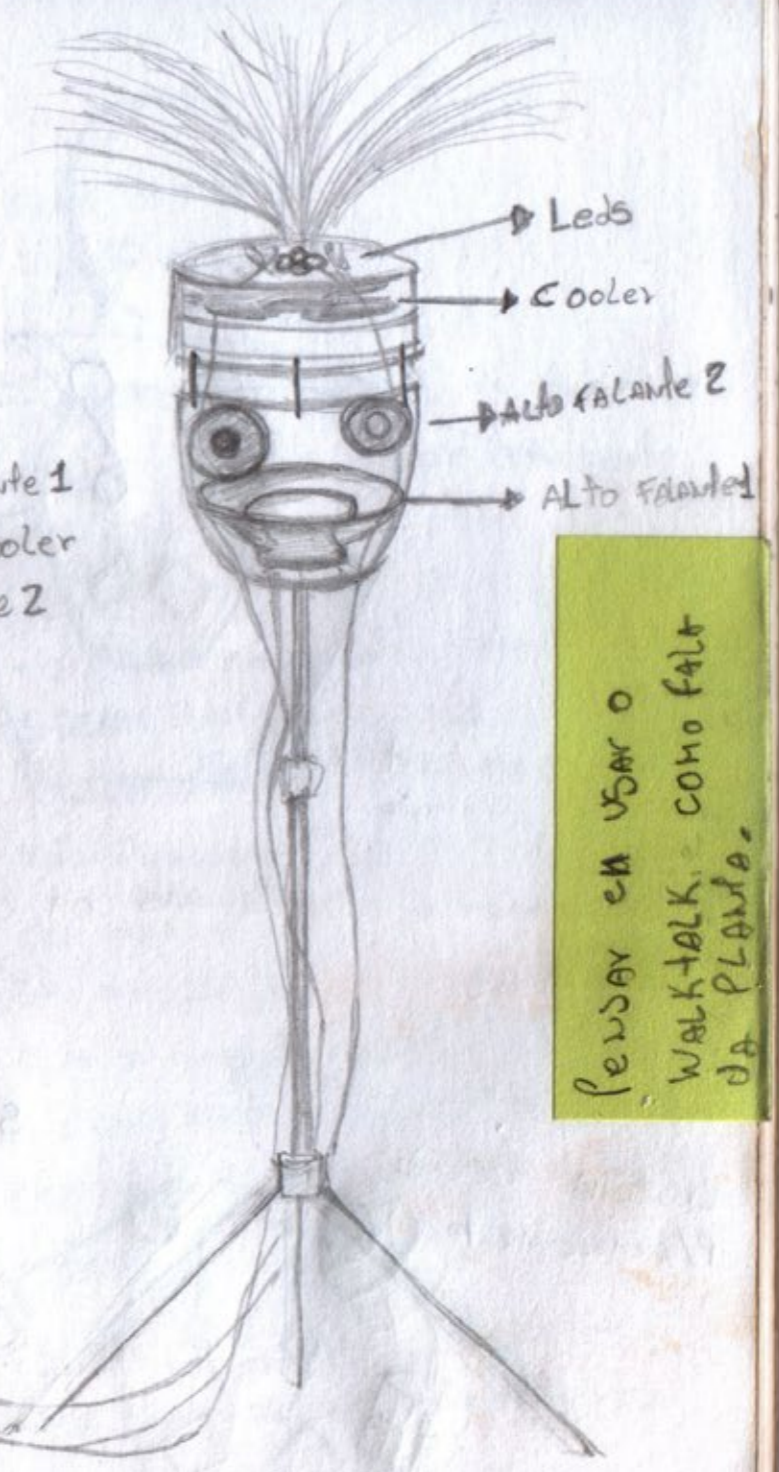 Leds
Cooler
Alto falante 2
Alto falante 1
nte 1
oler
e 2
Pensar em usar o
WALKTALK como fala
da PLANTA.